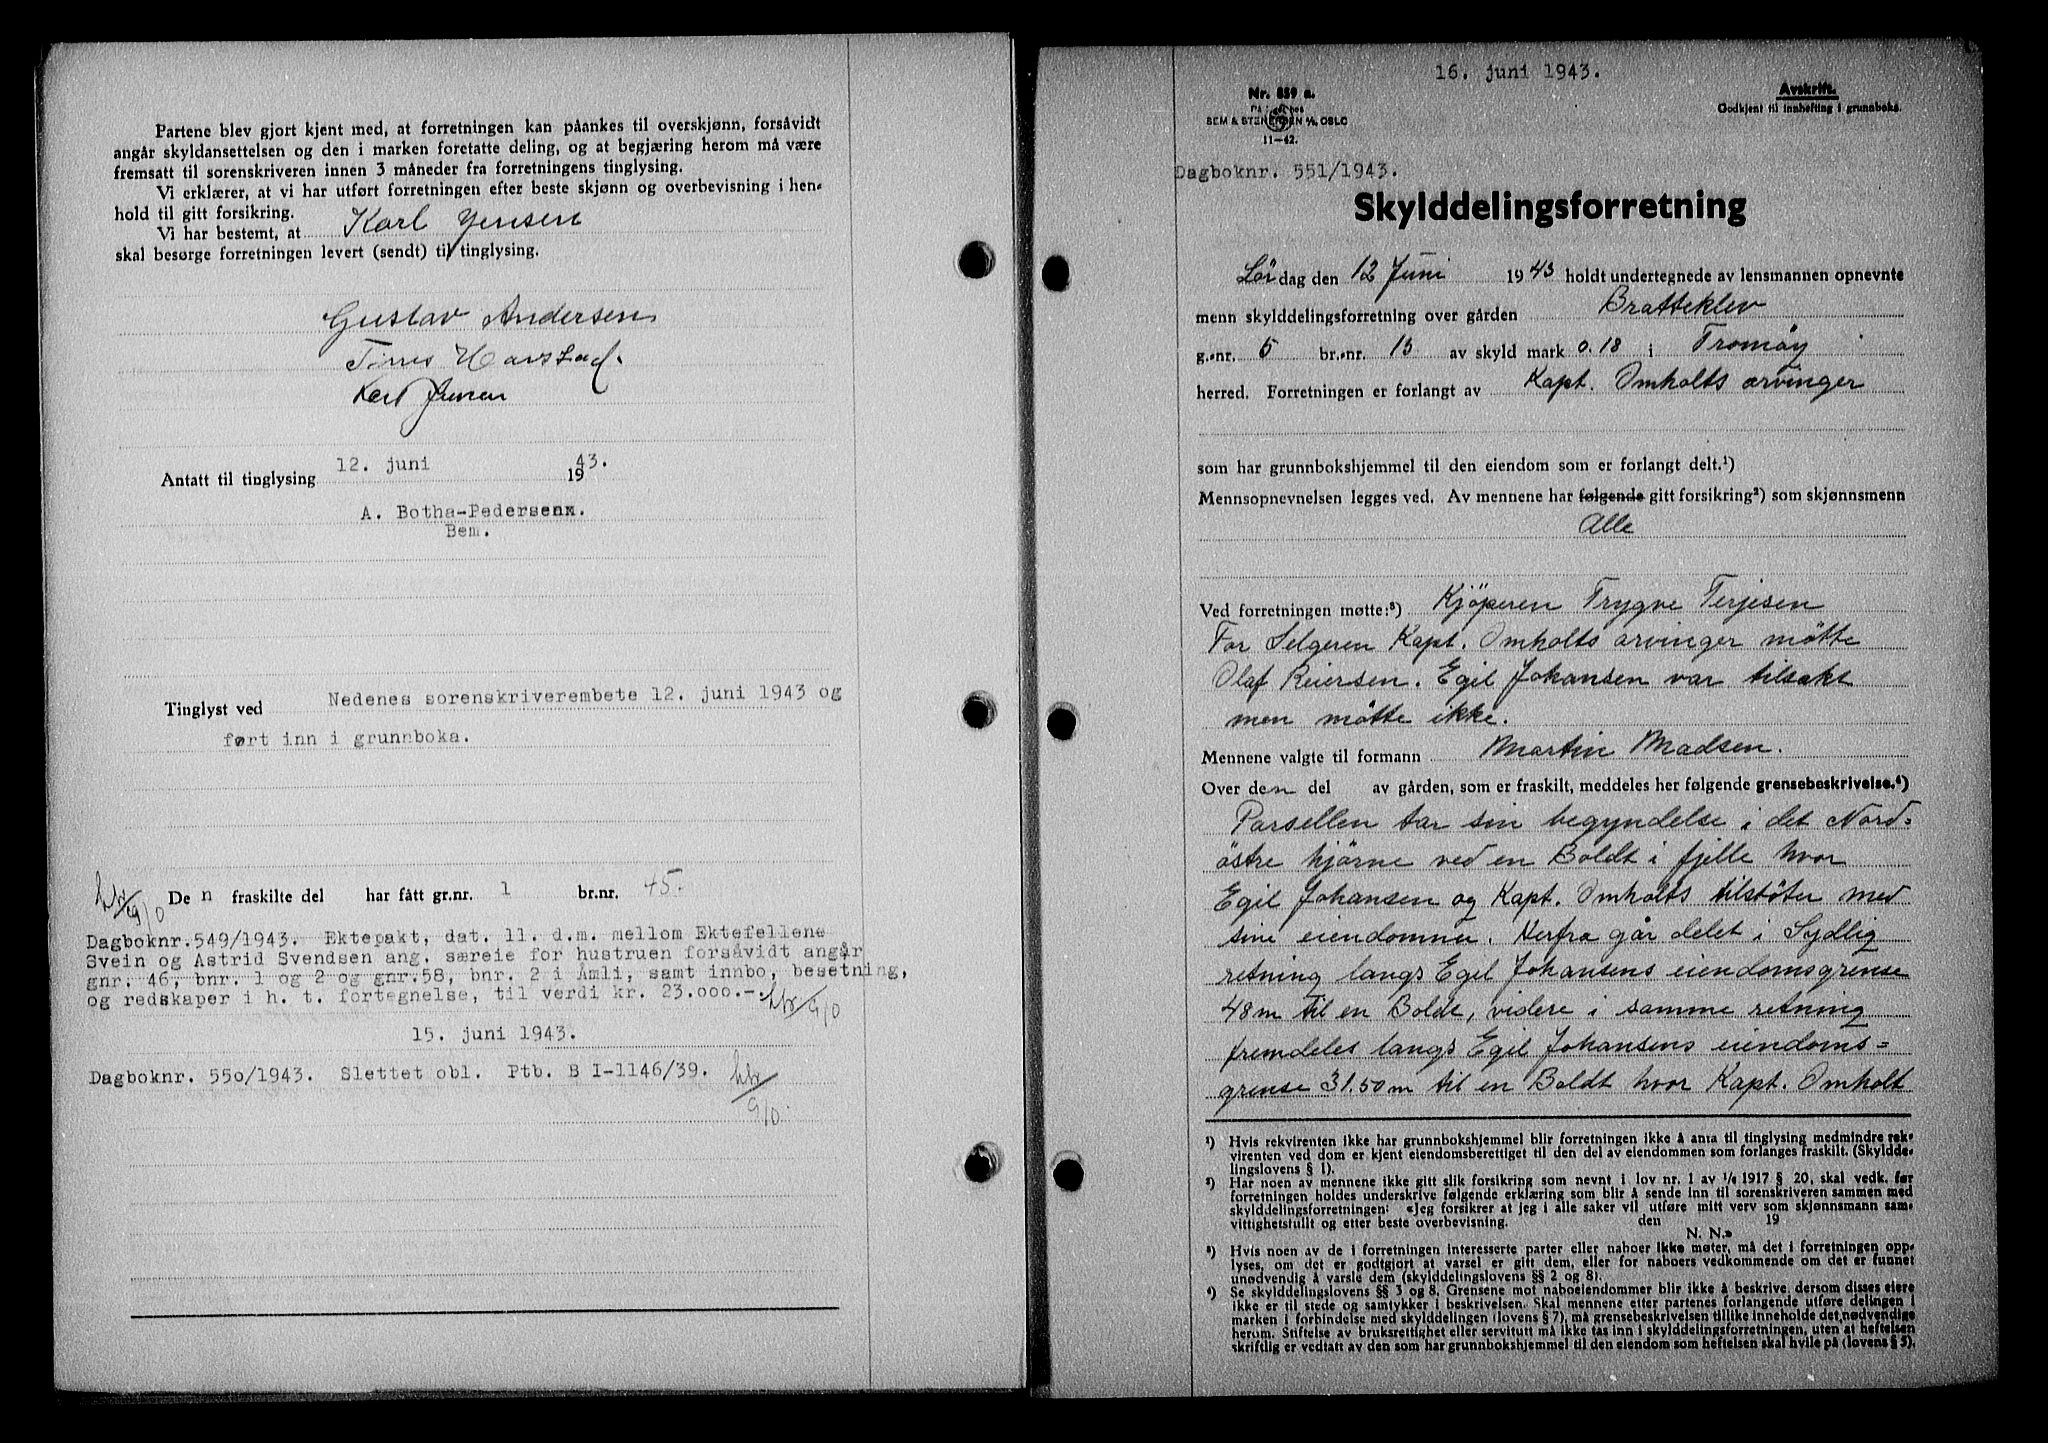 Partene blev gjort kjent med, at forretningen kan påankes til overskjønn, forsåvidt
angår skyldansettelsen og den i marken foretatte deling, og at begjæring herom må være
fremsatt til sorenskriveren innen 3 måneder fra forretningens tinglysing.
Vi erklærer, at vi har utført forretningen efter beste skjønn og overbevisning i hen-
hold til gitt forsikring.
Vi har bestemt, at Karl Jensen
skal besørge forretningen levert (sendt) til tinglysing.
Gustav Andersen
Harstad.
Karl Jensen
Antatt til tinglysing 12. juni 1943.
A. Botha-Pedersen.
Bem.
Tinglyst ved Nedenes sorenskriverembete 12. juni 1943 og
ført inn i grunnboka.
Den fraskilte del har fått gr.nr. 1 br.nr. 45.
Dagboknr. 549/1943. Ektepakt, dat. 11. d.m. mellom Ektefellene
Svein og Astrid Svendsen ang. særeie for hustruen forsåvidt angår
gnr. 46, bnr. 1 og 2 og gnr. 58, bnr. 2 i Åmli, samt innbo, besetning,
og redskaper i h. t. fortegnelse, til verdi kr. 23.000.-
15. juni 1943.
Dagboknr. 550/1943. Slettet obl. Ptb. B I-1146/39.
16. juni 1943.
Nr. 859 a.
SEM & STENERSEN A/S OSLO
11-42.
Avskrift.
Godkjent til innhefting i grunnboka.
Dagboknr. 551/1943.
Skylddelingsforretning
Lördag den 12 Juni 1943 holdt undertegnede av lensmannen opnevnte
menn skylddelingsforretning over gården Bratteklev
g.-nr. 5 br.-nr. 13 av skyld mark 0.18 i Tromöy
herred. Forretningen er forlangt av Kapt. Omholts arvinger
som har grunnbokshjemmel til den eiendom som er forlangt delt.¹)
Mennsopnevnelsen legges ved. Av mennene har følgende gitt forsikring²) som skjønnsmenn
Alle
Ved forretningen møtte:³) Kjöperen Trygve Terjesen
For Selgeren Kapt. Omholts arvinger mötte
Olaf Reiersen. Egil Johansen var tilsakt
men mötte ikke.
Mennene valgte til formann Martin Madsen.
Over den del av gården, som er fraskilt, meddeles her følgende grensebeskrivelse.⁴)
Parsellen tar sin begyndelse i det Nord-
östre hjörne ved en Boldt i fjelle hvor
Egil Johansen og Kapt. Omholts tilstöter med
sine eiendommer. Herfra går delet i Sydlig
retning langs Egil Johansens eiendomsgrense
48 m til en Boldt, videre i samme retning
fremdeles langs Egil Johansens eiendoms=
grense 31.50 m til en Boldt hvor Kapt. Omholt
¹) Hvis rekvirenten ikke har grunnbokshjemmel blir forretningen ikke å anta til tinglysing medmindre rek-
virenten ved dom er kjent eiendomsberettiget til den del av eiendommen som forlanges fraskilt. (Skyldde-
lingslovens § 1).
²) Har noen av mennene ikke gitt slik forsikring som nevnt i lov nr. 1 av 1/6 1917 § 20, skal vedk. før
forretningen holdes underskrive følgende erklæring som blir å sende inn til sorenskriveren sammen med
skylddelingsforretningen: «Jeg forsikrer at jeg i alle saker vil utføre mitt verv som skjønnsmann sam-
vittighetsfullt og etter beste overbevisning. den 19
N. N.»
³) Hvis noen av de i forretningen interesserte parter eller naboer ikke møter, må det i forretningen opp-
lyses, om det er godtgjort at varsel er gitt dem, eller for naboers vedkommende om det er funnet
unødvendig å varsle dem (skylddelingslovens §§ 2 og 8).
⁴) Se skylddelingslovens §§ 3 og 8. Grensene mot naboeiendommer blir ikke å beskrive, dersom disses eiere
ikke er til stede og samtykker i beskrivelsen. Skal mennene etter partenes forlangende utføre delingen i
marken i forbindelse med skylddelingen (lovens § 7), må grensebeskrivelsen tillike inneholde det nødvendige
herom. Stiftelse av bruksrettighet eller servitutt må ikke tas inn i skylddelingsforretningen, uten at heftelsen
skriftlig er vedtatt av den som har grunnbokshjemmel til den eiendom som heftelsen skal hvile på (lovens § 5).